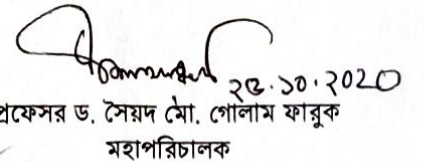 ২৫.১০.২০২০
প্রফেসর ড. সৈয়দ মো. গোলাম ফারুক
মহাপরিচালক